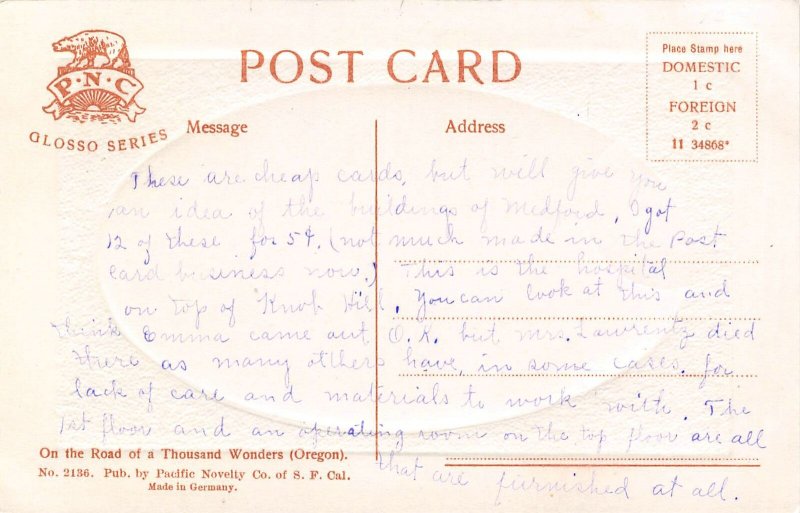 P·N·C
GLOSSO SERIES
POST CARD
Place Stamp here
DOMESTIC
1 c
FOREIGN
2 c
11 34868*
Message
Address
These are cheap cards, but will give you
an idea of the buildings of Medford, I got
12 of these for 5¢. (not much made in the Post
Card business now.) This is the hospital
on top of Knob Hill. You can look at this and
think Emma came out O.K. but Mrs. Lawrentz died
there as many others have, in some cases. for
lack of care and materials to work with. The
1st floor and an operating room on the top floor are all
that are furnished at all.
On the Road of a Thousand Wonders (Oregon).
No. 2136. Pub. by Pacific Novelty Co. of S. F. Cal.
Made in Germany.